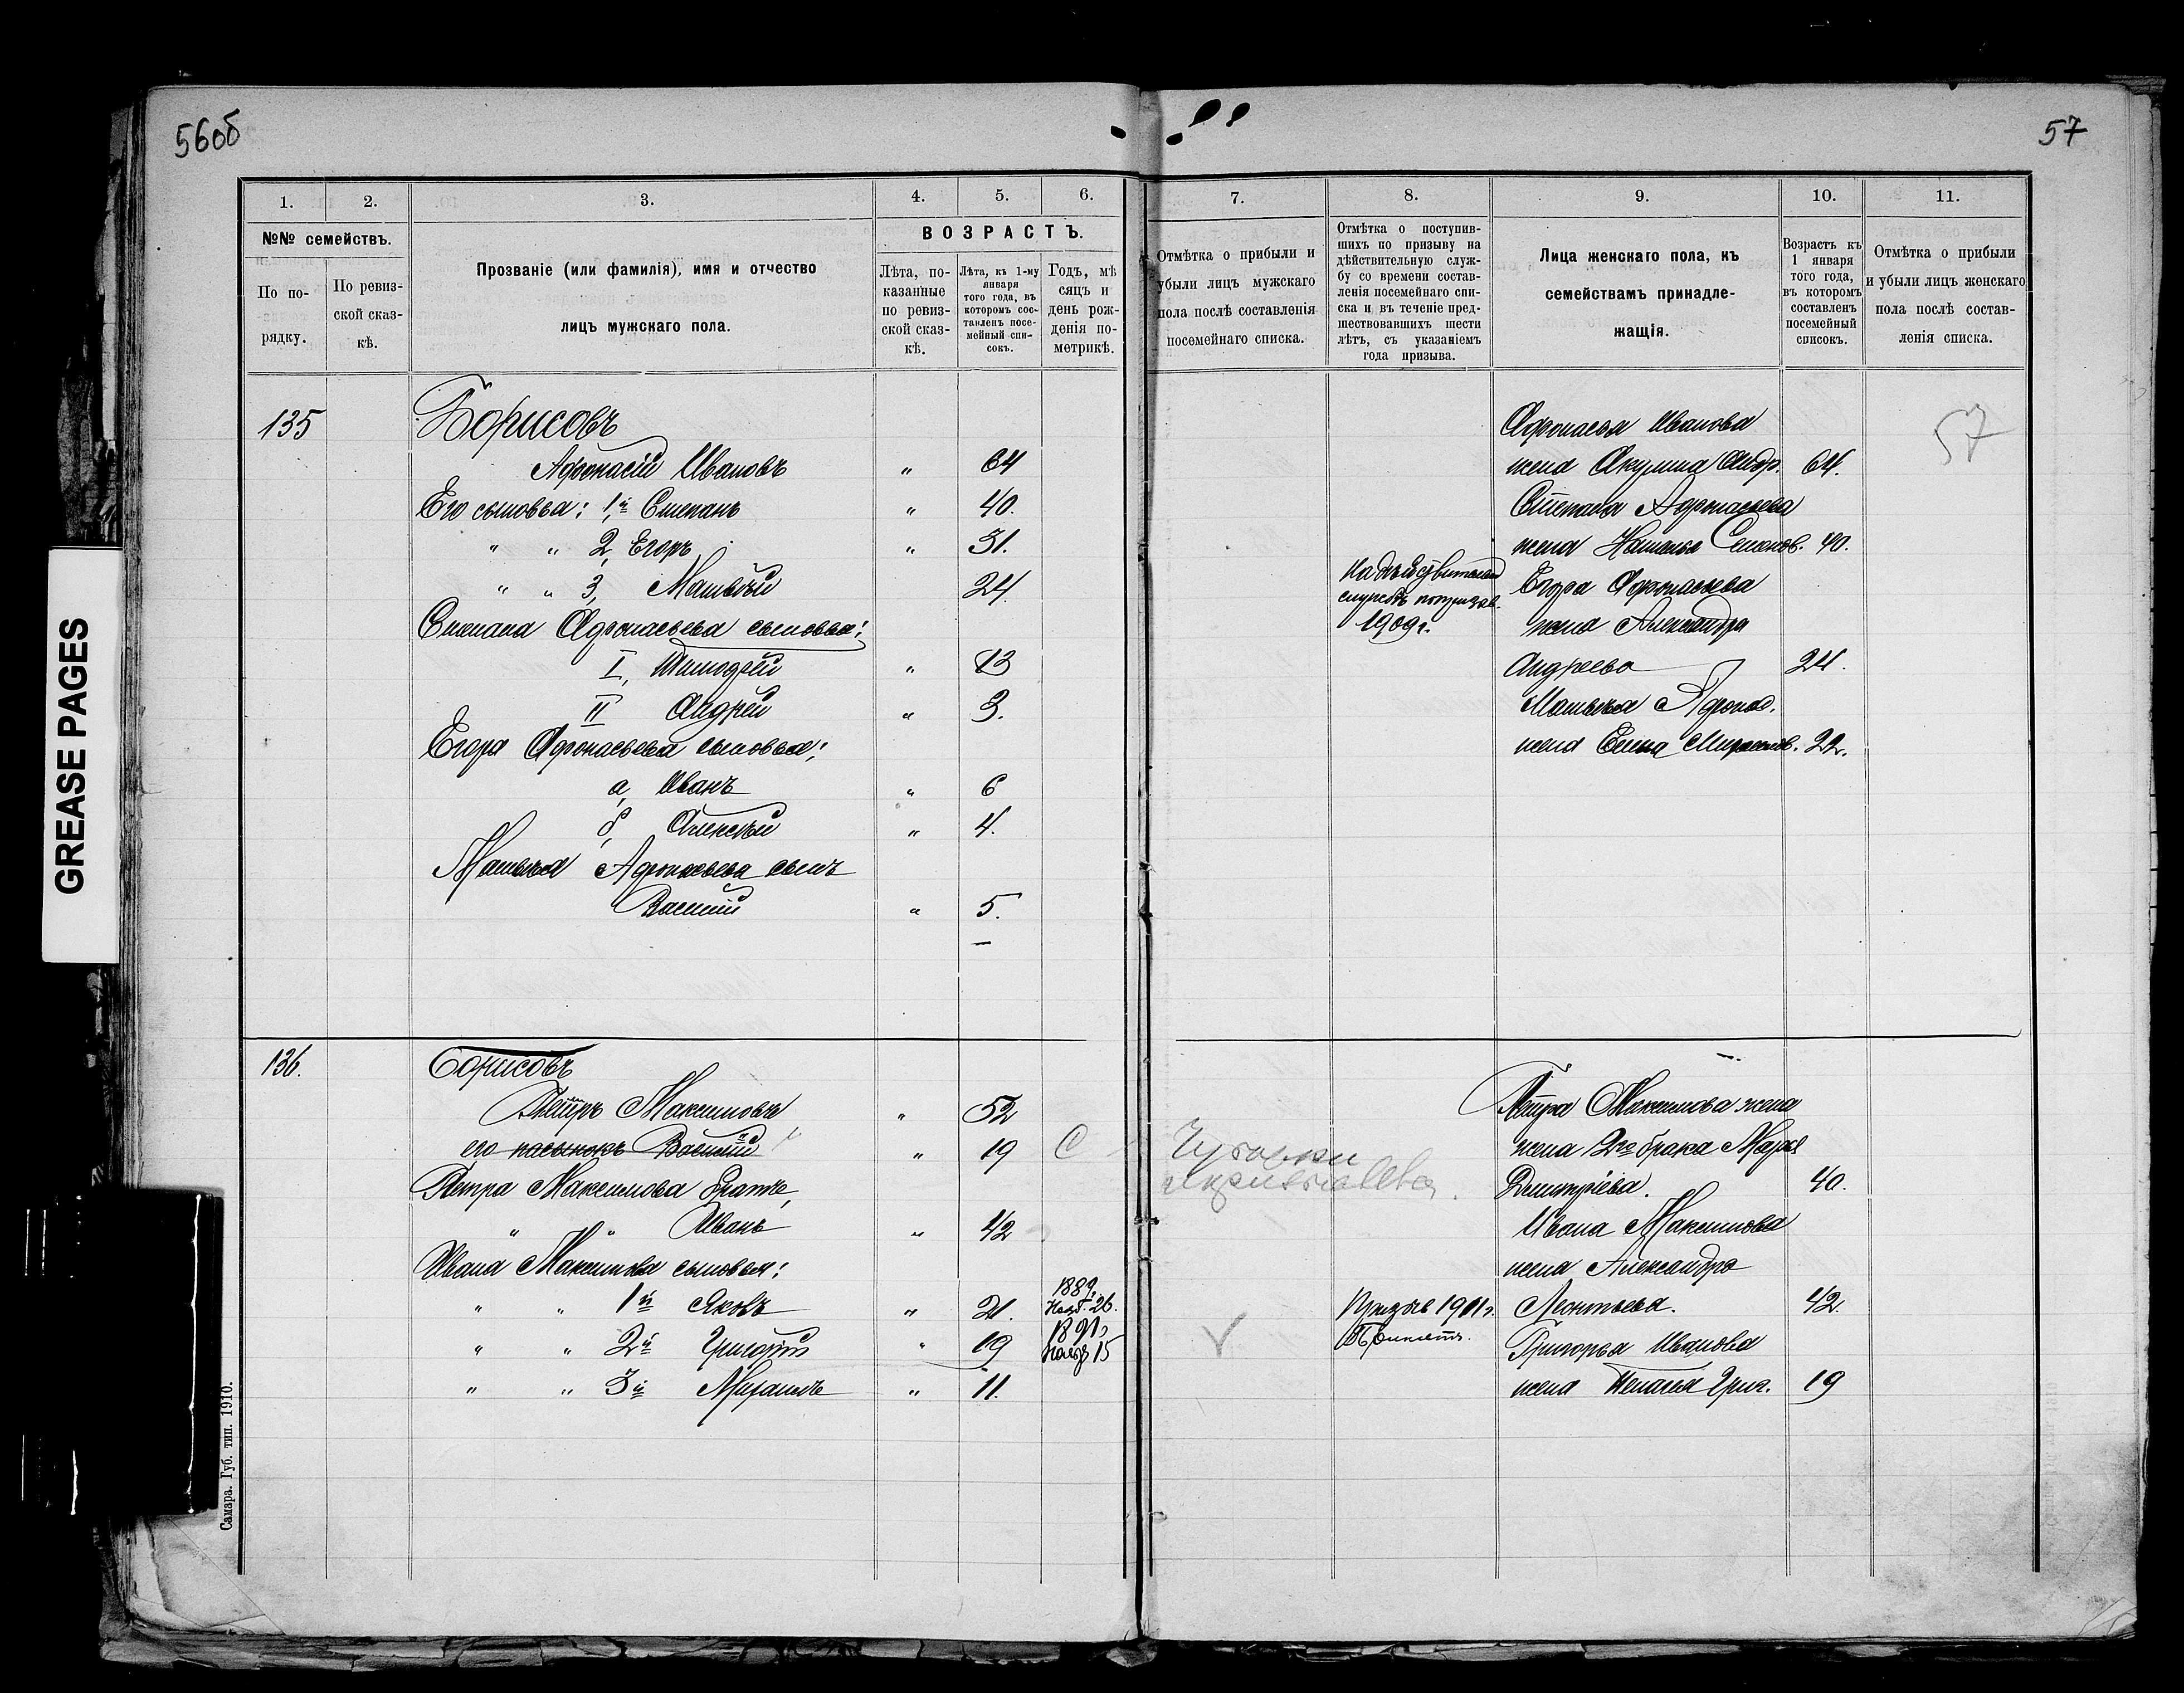 56об
57
1.
2.
3.
4.
5.
6.
№№ семействъ.
По по-
рядку.
По ревиз-
ской сказ-
кѣ.
Прозваніе (или фамилія), имя и отчество
лицъ мужскаго пола.
ВОЗРАСТЪ.
Лѣта, по-
казанные
по ревиз-
ской сказ-
кѣ.
Лѣта, къ 1-му
января
того года, въ
которомъ сос-
тавленъ посе-
мейный спи-
сокъ.
Годъ, мѣ
сяцъ и
день рож-
денія по-
метрикѣ.
7.
8.
9.
10.
11.
Отмѣтка о прибыли и
убыли лицъ мужскаго
пола послѣ составленія
посемейнаго списка.
Отмѣтка о поступив-
шихъ по призыву на
дѣйствительную служ-
бу со времени состав-
ленія посемейнаго спи-
ска и въ теченіе пред-
шествовавшихъ шести
лѣтъ, съ указаніемъ
года призыва.
Лица женскаго пола, къ
семействамъ принадле-
жащія.
Возрастъ къ
1 января
того года,
въ которомъ
составленъ
посемейный
списокъ.
Отмѣтка о прибыли
и убыли лицъ женскаго
пола послѣ состав-
ленія списка.
135 Борисовъ
Афонасій Ивановъ " 64
Его сыновья: 1й Степанъ " 40.
" " 2, Егоръ " 31.
" " 3, Матвѣй 24.
Степана Афонасьева сыновья:
I, Тимофей " 13
II Андрей " 3.
Егора Афонасьева сыновья:
а, Иванъ " 6
б, Алексѣй " 4.
Матвѣя Афонасьева сынъ
Василій " 5.
На дѣйствительной
службѣ
1909 г.
Афонасья Иванова
жена Акулина Андр. 64.
Степана Афонасьева
жена Наталья Семенов. 40.
Егора Афонасьева
жена Александра
Андреева 24.
Матвѣя Афонас.
жена Елена 22.
57
136. Борисовъ
Петръ Максимовъ " 52
его пасынокъ Василій " 19 С
Петра Максимова братъ,
" " Иванъ " 42
Ивана Максимова сыновья:
" " 1й Яковъ " 21. 1889. Нояб. 26.
" " 2й Григорій " 19 1891 Нояб 15
" " 3й Михаилъ " 11.
V
Призывъ 1911 г.
Принятъ.
Петра Максимова жена
жена 2го брака Марья
Дмитріева. 40.
Ивана Максимова
жена Александра
Леонтьева. 42.
Григорья Иванова
жена Пелагея Григ. 19
Самара. Губ. тип. 1910.
GREASE PAGES